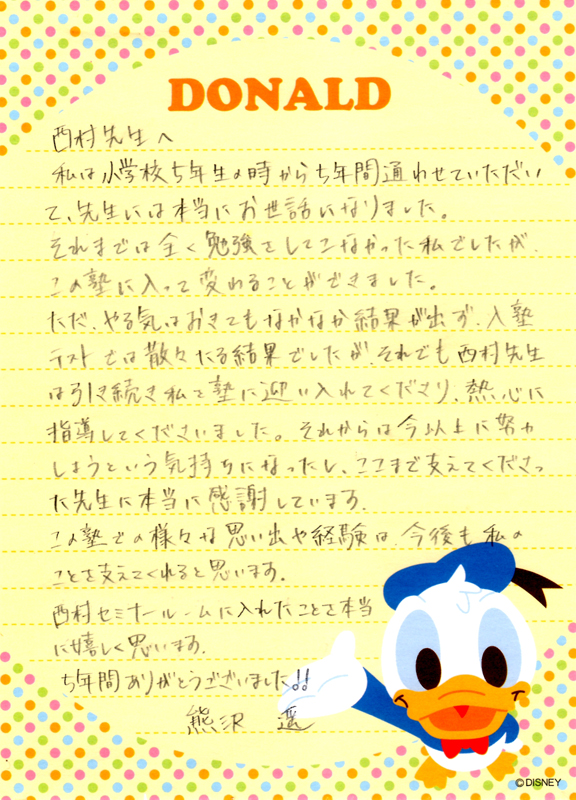 DONALD
西村先生へ
私は小学校5年生の時から5年間通わせていただい
て、先生には本当にお世話になりました。
それまでは全く勉強をしてこなかった私でしたが、
この塾に入って変わることができました。
ただ、やる気はおきてもなかなか結果が出ず、入塾
テストでは散々たる結果でしたが、それでも西村先生
は引き続き私を塾に迎い入れてくださり、熱心に
指導してくださいました。それからは今以上に努力
しようという気持ちになったし、ここまで支えてくださっ
た先生に本当に感謝しています。
この塾での様々な思い出や経験は、今後も私の
ことを支えてくれると思います。
西村セミナールームに入れたことを本当
に嬉しく思います。
5年間ありがとうございました!!
熊沢 遥
©DISNEY